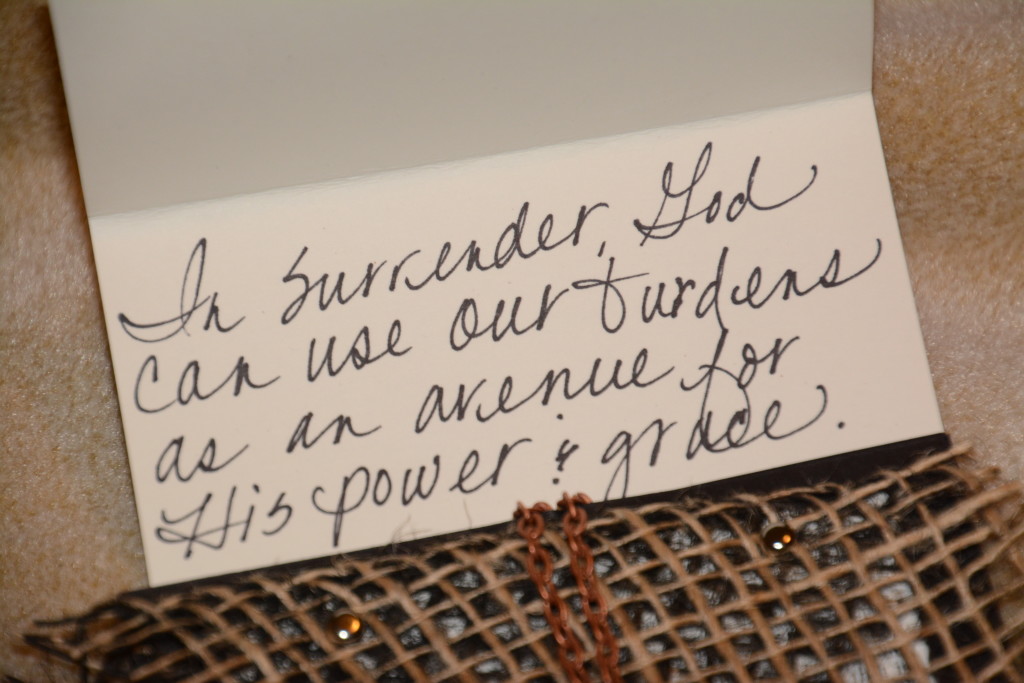 In surrender, God
can use our burdens
as an avenue for
His power & grace.